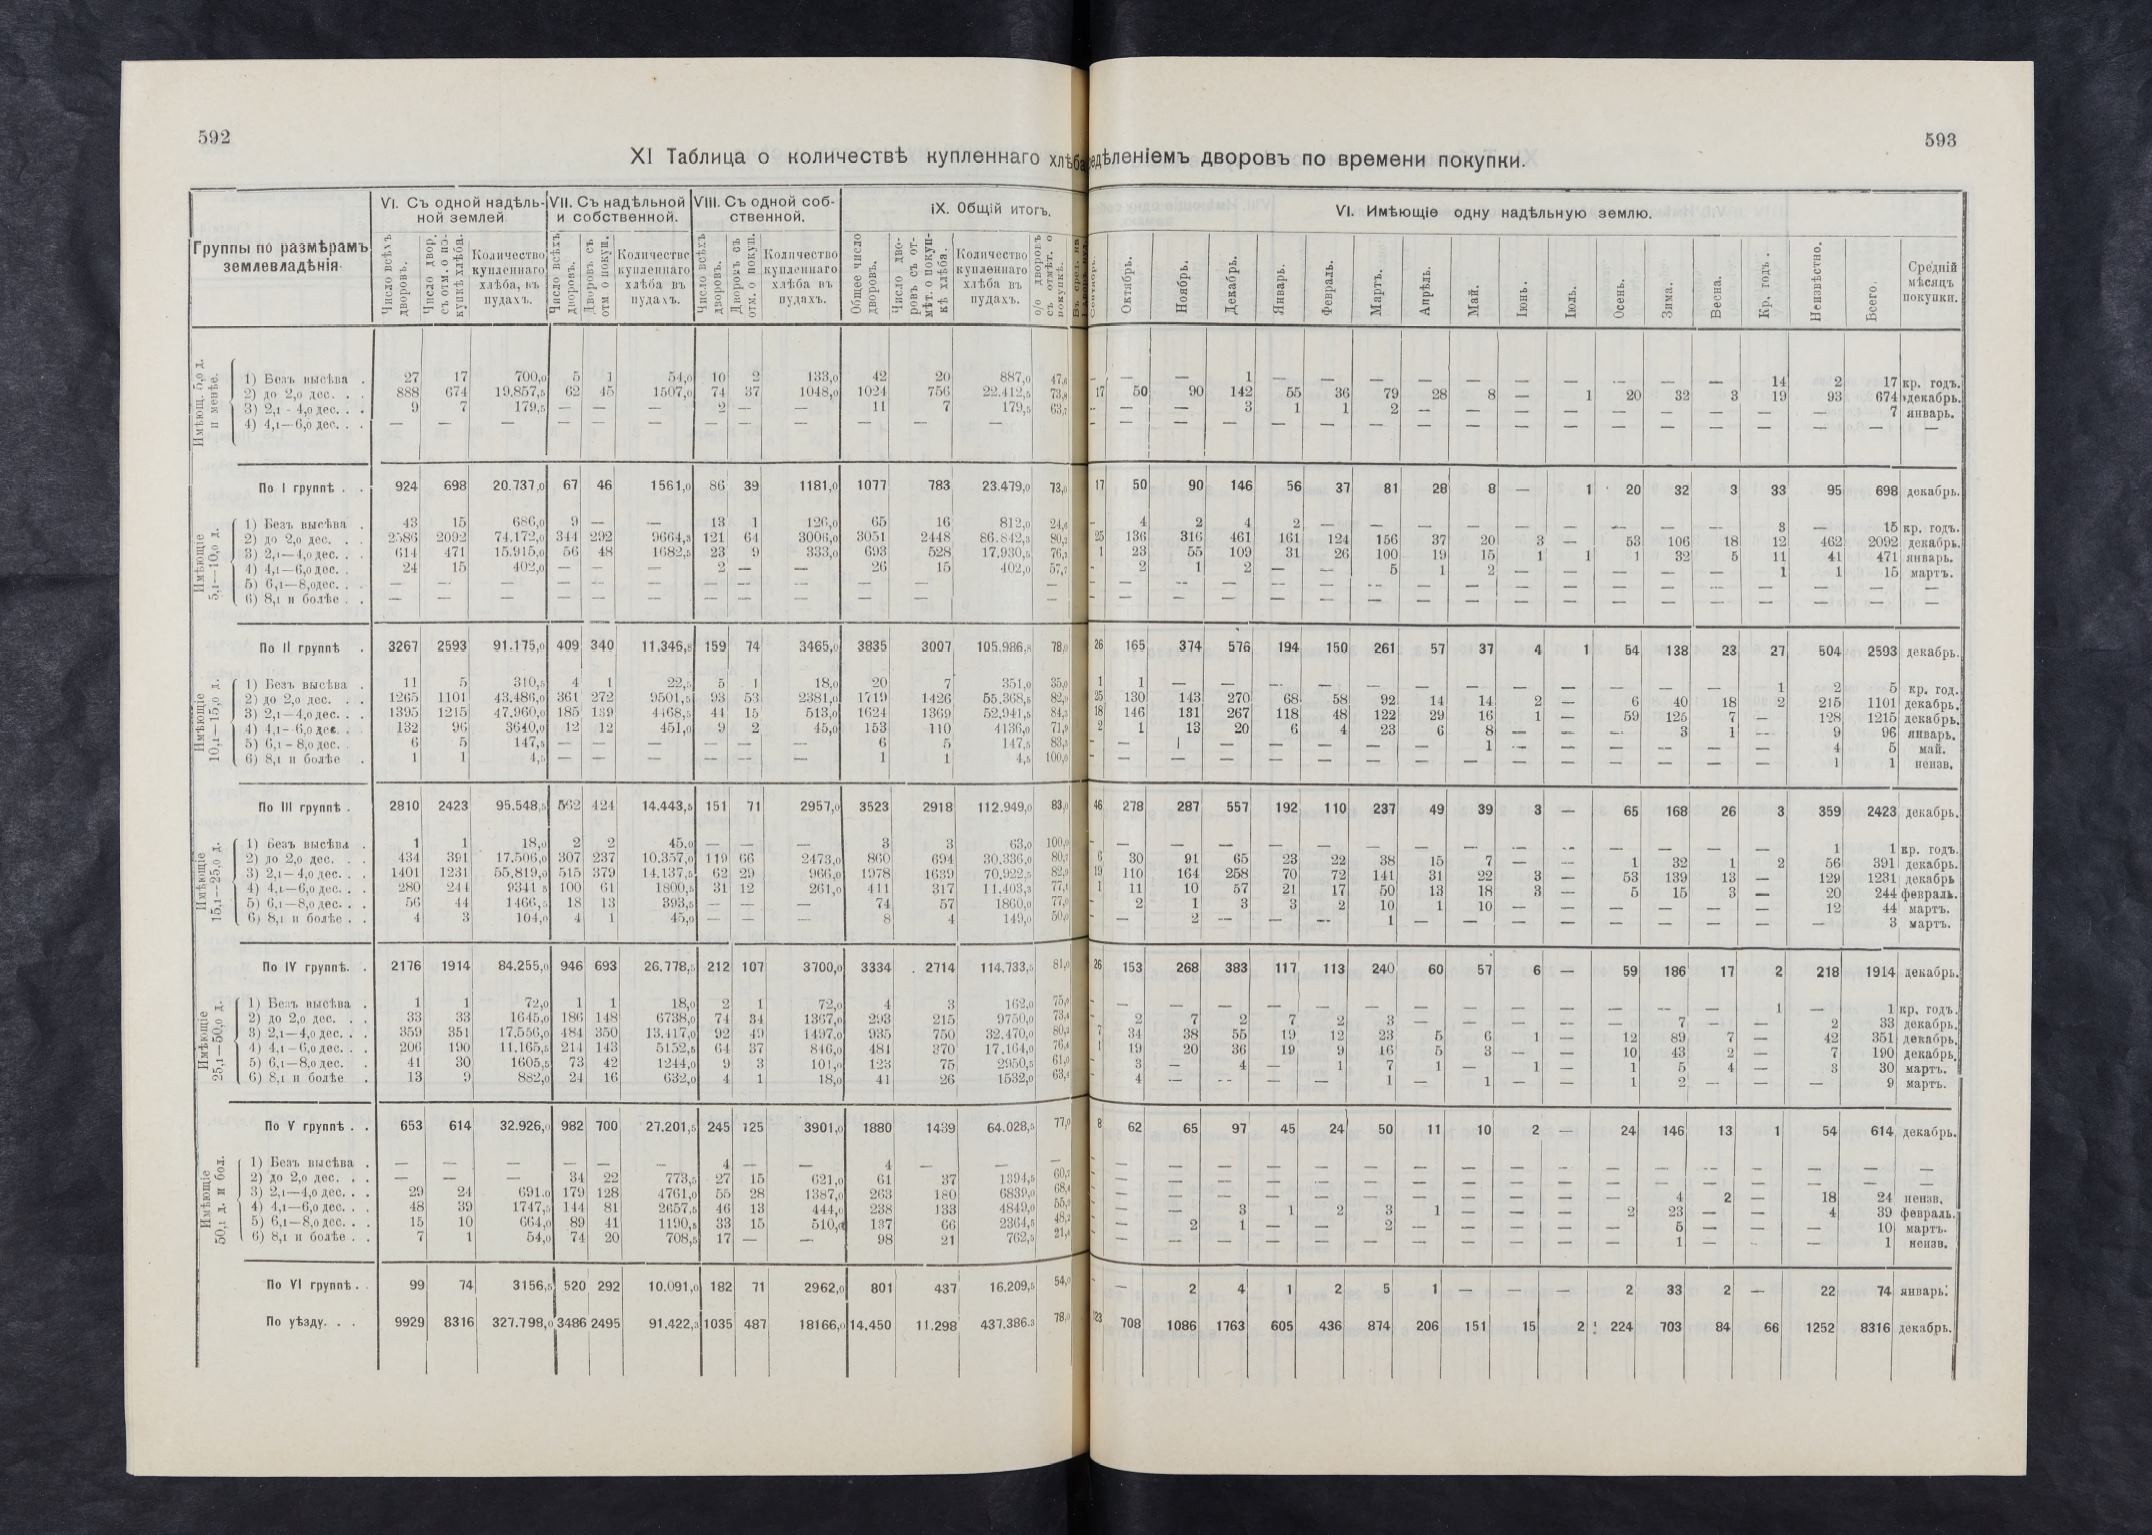 592
593
XI Таблица о количествѣ купленнаго хлѣба
едѣленіемъ дворовъ по времени покупки.
Группы по размѣрамъ землевладѣнія
VI. Съ одной надѣльной землей
VII. Съ надѣльной и собственной.
VIII. Съ одной собственной.
IX. Общій итогъ.
Число всѣхъ дворовъ.
Число двор. съ отм. о покупкѣ хлѣба.
Количество купленнаго хлѣба, въ пудахъ.
Число всѣхъ дворовъ.
Дворовъ съ отм. о покуп.
Количество купленнаго хлѣба въ пудахъ.
Число всѣхъ дворовъ.
Дворовъ съ отм. о покуп.
Количество купленнаго хлѣба въ пудахъ.
Общее число дворовъ.
Число дворовъ съ отмѣт. о покупкѣ хлѣба.
Количество купленнаго хлѣба въ пудахъ.
о/о дворовъ съ отмѣт. о покупкѣ.
Имѣющ. 5,0 д. и менѣе.
1) Безъ высѣва . 27 17 700,0 5 1 54,0 10 2 133,0 42 20 887,0
2) до 2,0 дес. . . 888 674 19.857,5 62 45 1507,0 74 37 1048,0 1024 756 22.412,5
3) 2,1 - 4,0 дес. . . 9 7 179,5 — — — 2 — — 11 7 179,5
4) 4,1—6,0 дес. . . — — — — — — — — — — — —
По I группѣ . . 924 698 20.737,0 67 46 1561,0 86 39 1181,0 1077 783 23.479,0 73,0
Имѣющіе 5,1—10,0 д.
1) Безъ высѣва . 43 15 686,0 9 — — 13 1 126,0 65 16 812,0 24,6
2) до 2,0 дес. . . 2586 2092 74.172,0 344 292 9664,3 121 64 3006,0 3051 2448 86.842,3
3) 2,1—4,0 дес. . . 614 471 15.915,0 56 48 1682,5 23 9 333,0 693 528 17.930,5
4) 4,1—6,0 дес. . 24 15 402,0 — — — 2 — — 26 15 402,0 57,7
5) 6,1—8,0 дес. . . — — — — — — — — — — — — —
6) 8,1 и болѣе . . — — — — — — — — — — — — —
По II группѣ . 3267 2593 91.175,0 409 340 11.346,8 159 74 3465,0 3835 3007 105.986,8 78,0
Имѣющіе 10,1—15,0 д.
1) Безъ высѣва . 11 5 310,5 4 1 22,5 5 1 18,0 20 7 351,0 35,0
2) до 2,0 дес. . . 1265 1101 43.486,0 361 272 9501,5 93 53 2381,0 1719 1426 55.368,5
3) 2,1—4,0 дес. . . 1395 1215 47.960,0 185 139 4468,5 44 15 513,0 1624 1369 52.941,5
4) 4,1—6,0 дес. . 132 96 3640,0 12 12 451,0 9 2 45,0 153 110 4136,0
5) 6,1 - 8,0 дес. . 6 5 147,5 — — — — — — 6 5 147,5
6) 8,1 и болѣе . 1 1 4,5 — — — — — — 1 1 4,5 100,0
По III группѣ . 2810 2423 95.548,5 562 424 14.443,5 151 71 2957,0 3523 2918 112.949,0 83,0
Имѣющіе 15,1—25,0 д.
1) безъ высѣва . 1 1 18,0 2 2 45,0 — — — 3 3 63,0 100,0
2) до 2,0 дес. . . 434 391 17.506,0 307 237 10.357,0 119 66 2473,0 860 694 30.336,0
3) 2,1— 4,0 дес. . . 1401 1231 55,819,0 515 379 14.137,5 62 29 966,0 1978 1639 70.922,5
4) 4,1—6,0 дес. . . 280 244 9341 5 100 61 1800,5 31 12 261,0 411 317 11.403,3 77,1
5) 6,1—8,0 дес. . . 56 44 1466,5 18 13 393,5 — — — 74 57 1860,0 77,0
6) 8,1 и болѣе . . 4 3 104,0 4 1 45,0 — — — 8 4 149,0 50,0
По IV группѣ. . 2176 1914 84.255,0 946 693 26.778,5 212 107 3700,0 3334 . 2714 114.733,5 81,0
Имѣющіе 25,1—50,0 д.
1) Безъ высѣва . 1 1 72,0 1 1 18,0 2 1 72,0 4 3 162,0 75,0
2) до 2,0 дес. . . 33 33 1645,0 186 148 6738,0 74 34 1367,0 293 215 9750,0 73,4
3) 2,1—4,0 дес. . . 359 351 17.556,0 484 350 13.417,0 92 49 1497,0 935 750 32.470,0
4) 4,1—6,0 дес. . . 206 190 11.165,5 214 143 5152,5 64 37 846,0 484 370 17.164,0
5) 6,1—8,0 дес. . 41 30 1605,5 73 42 1244,0 9 3 101,0 123 75 2950,5 61,0
6) 8,1 и болѣе . 13 9 882,0 24 16 632,0 4 1 18,0 41 26 1532,0 63,4
По V группѣ . . 653 614 32.926,0 982 700 27.201,5 245 125 3901,0 1880 1439 64.028,5 77,0
Имѣющіе 50,1 д. и бол.
1) Безъ высѣва . — — — — — — 4 — — 4 — — —
2) до 2,0 дес. . . — — — 34 22 773,5 27 15 621,0 61 37 1394,5
3) 2,1—4,0 дес. . . 29 24 691.0 179 128 4761,0 55 28 1387,0 263 180 6839,0 68,4
4) 4,1—6,0 дес. . . 48 39 1747,5 144 81 2657,5 46 13 444,0 238 133 4849,0
5) 6,1—8,0 дес. . . 15 10 664,0 89 41 1190,5 33 15 510,0 137 66 2364,5 48,2
6) 8,1 и болѣе . . 7 1 54,0 74 20 708,5 17 — — 98 21 762,5 21,4
По VI группѣ. . 99 74 3156,5 520 292 10.091,0 182 71 2962,0 801 437 16.209,5 54,0
По уѣзду. . . 9929 8316 327.798,0 3486 2495 91.422,3 1035 487 18166,0 14.450 11.298 437.386.3 78,0
VI. Имѣющіе одну надѣльную землю.
Октябрь. Ноябрь. Декабрь. Январь. Февраль. Мартъ. Апрѣль. Май. Іюнь. Іюль. Осень. Зима. Весна. Кр. годъ. Неизвѣстно. Всего. Средній мѣсяцъ покупки.
— — 1 — — — — — — — — — — 14 2 17 кр. годъ.
17 50 90 142 55 36 79 28 8 — 1 20 32 3 19 93 674 декабрь.
— — 3 1 1 2 — — — — — — — — — 7 январь.
— — — — — — — — — — — — — — — — —
17 50 90 146 56 37 81 28 8 — 1 20 32 3 33 95 698 декабрь.
- 4 2 4 2 — — — — — — — — — 3 — 15 кр. годъ.
25 136 316 461 161 124 156 37 20 3 — 53 106 18 12 462 2092 декабрь.
1 23 55 109 31 26 100 19 15 1 1 1 32 5 11 41 471 январь.
- 2 1 2 — — 5 1 2 — — — — — 1 1 15 мартъ.
— — — — — — — — — — — — — — — — —
— — — — — — — — — — — — — — — — —
26 165 374 576 194 150 261 57 37 4 1 54 138 23 27 504 2593 декабрь.
1 1 — — — — — — — — — — — — 1 2 5 кр. год.
25 130 143 270 68 58 92 14 14 2 — 6 40 18 2 215 1101 декабрь.
18 146 131 267 118 48 122 29 16 1 — 59 125 7 — 128 1215 декабрь.
2 1 13 20 6 4 23 6 8 — — — 3 1 — 9 96 январь.
- — | — — — — — 1 — — — — — — 4 5 май.
- — — — — — — — — — — — — — — 1 1 неизв.
46 278 287 557 192 110 237 49 39 3 — 65 168 26 3 359 2423 декабрь.
— — — — — — — — — — — — — — 1 1 кр. годъ.
6 30 91 65 23 22 38 15 7 — — 1 32 1 2 56 391 декабрь.
19 110 164 258 70 72 141 31 22 3 — 53 139 13 — 129 1231 декабрь
1 11 10 57 21 17 50 13 18 3 — 5 15 3 — 20 244 февраль.
- 2 1 3 3 2 10 1 10 — — — — — — 12 44 мартъ.
- — 2 — — — 1 — — — — — — — — — 3 мартъ.
26 153 268 383 117 113 240 60 57 6 — 59 186 17 2 218 1914 декабрь.
- — — — — — — — — — — — — — 1 — 1 кр. годъ.
- 2 7 2 7 2 3 — — — — — 7 — — 2 33 декабрь.
7 34 38 55 19 12 23 5 6 1 — 12 89 7 — 42 351 декабрь.
1 19 20 36 19 9 16 5 3 — — 10 43 2 — 7 190 декабрь.
- 3 — 4 — 1 7 1 — 1 — 1 5 4 — 3 30 мартъ.
- 4 — — — — 1 — 1 — — 1 2 — — — 9 мартъ.
8 62 65 97 45 24 50 11 10 2 — 24 146 13 1 54 614 декабрь.
— — — — — — — — — — — — — — — — —
— — — — — — — — — — — — — — — — —
— — — — — — — — — — — 4 2 — 18 24 неизв.
— — 3 1 2 3 1 — — — 2 23 — — 4 39 февраль.
— 2 1 — — 2 — — — — — 5 — — — 10 мартъ.
— — — — — — — — — — — 1 — — — 1 неизв.
— 2 4 1 2 5 1 — — — 2 33 2 — 22 74 январь.
708 1086 1763 605 436 874 206 151 15 2 224 703 84 66 1252 8316 декабрь.